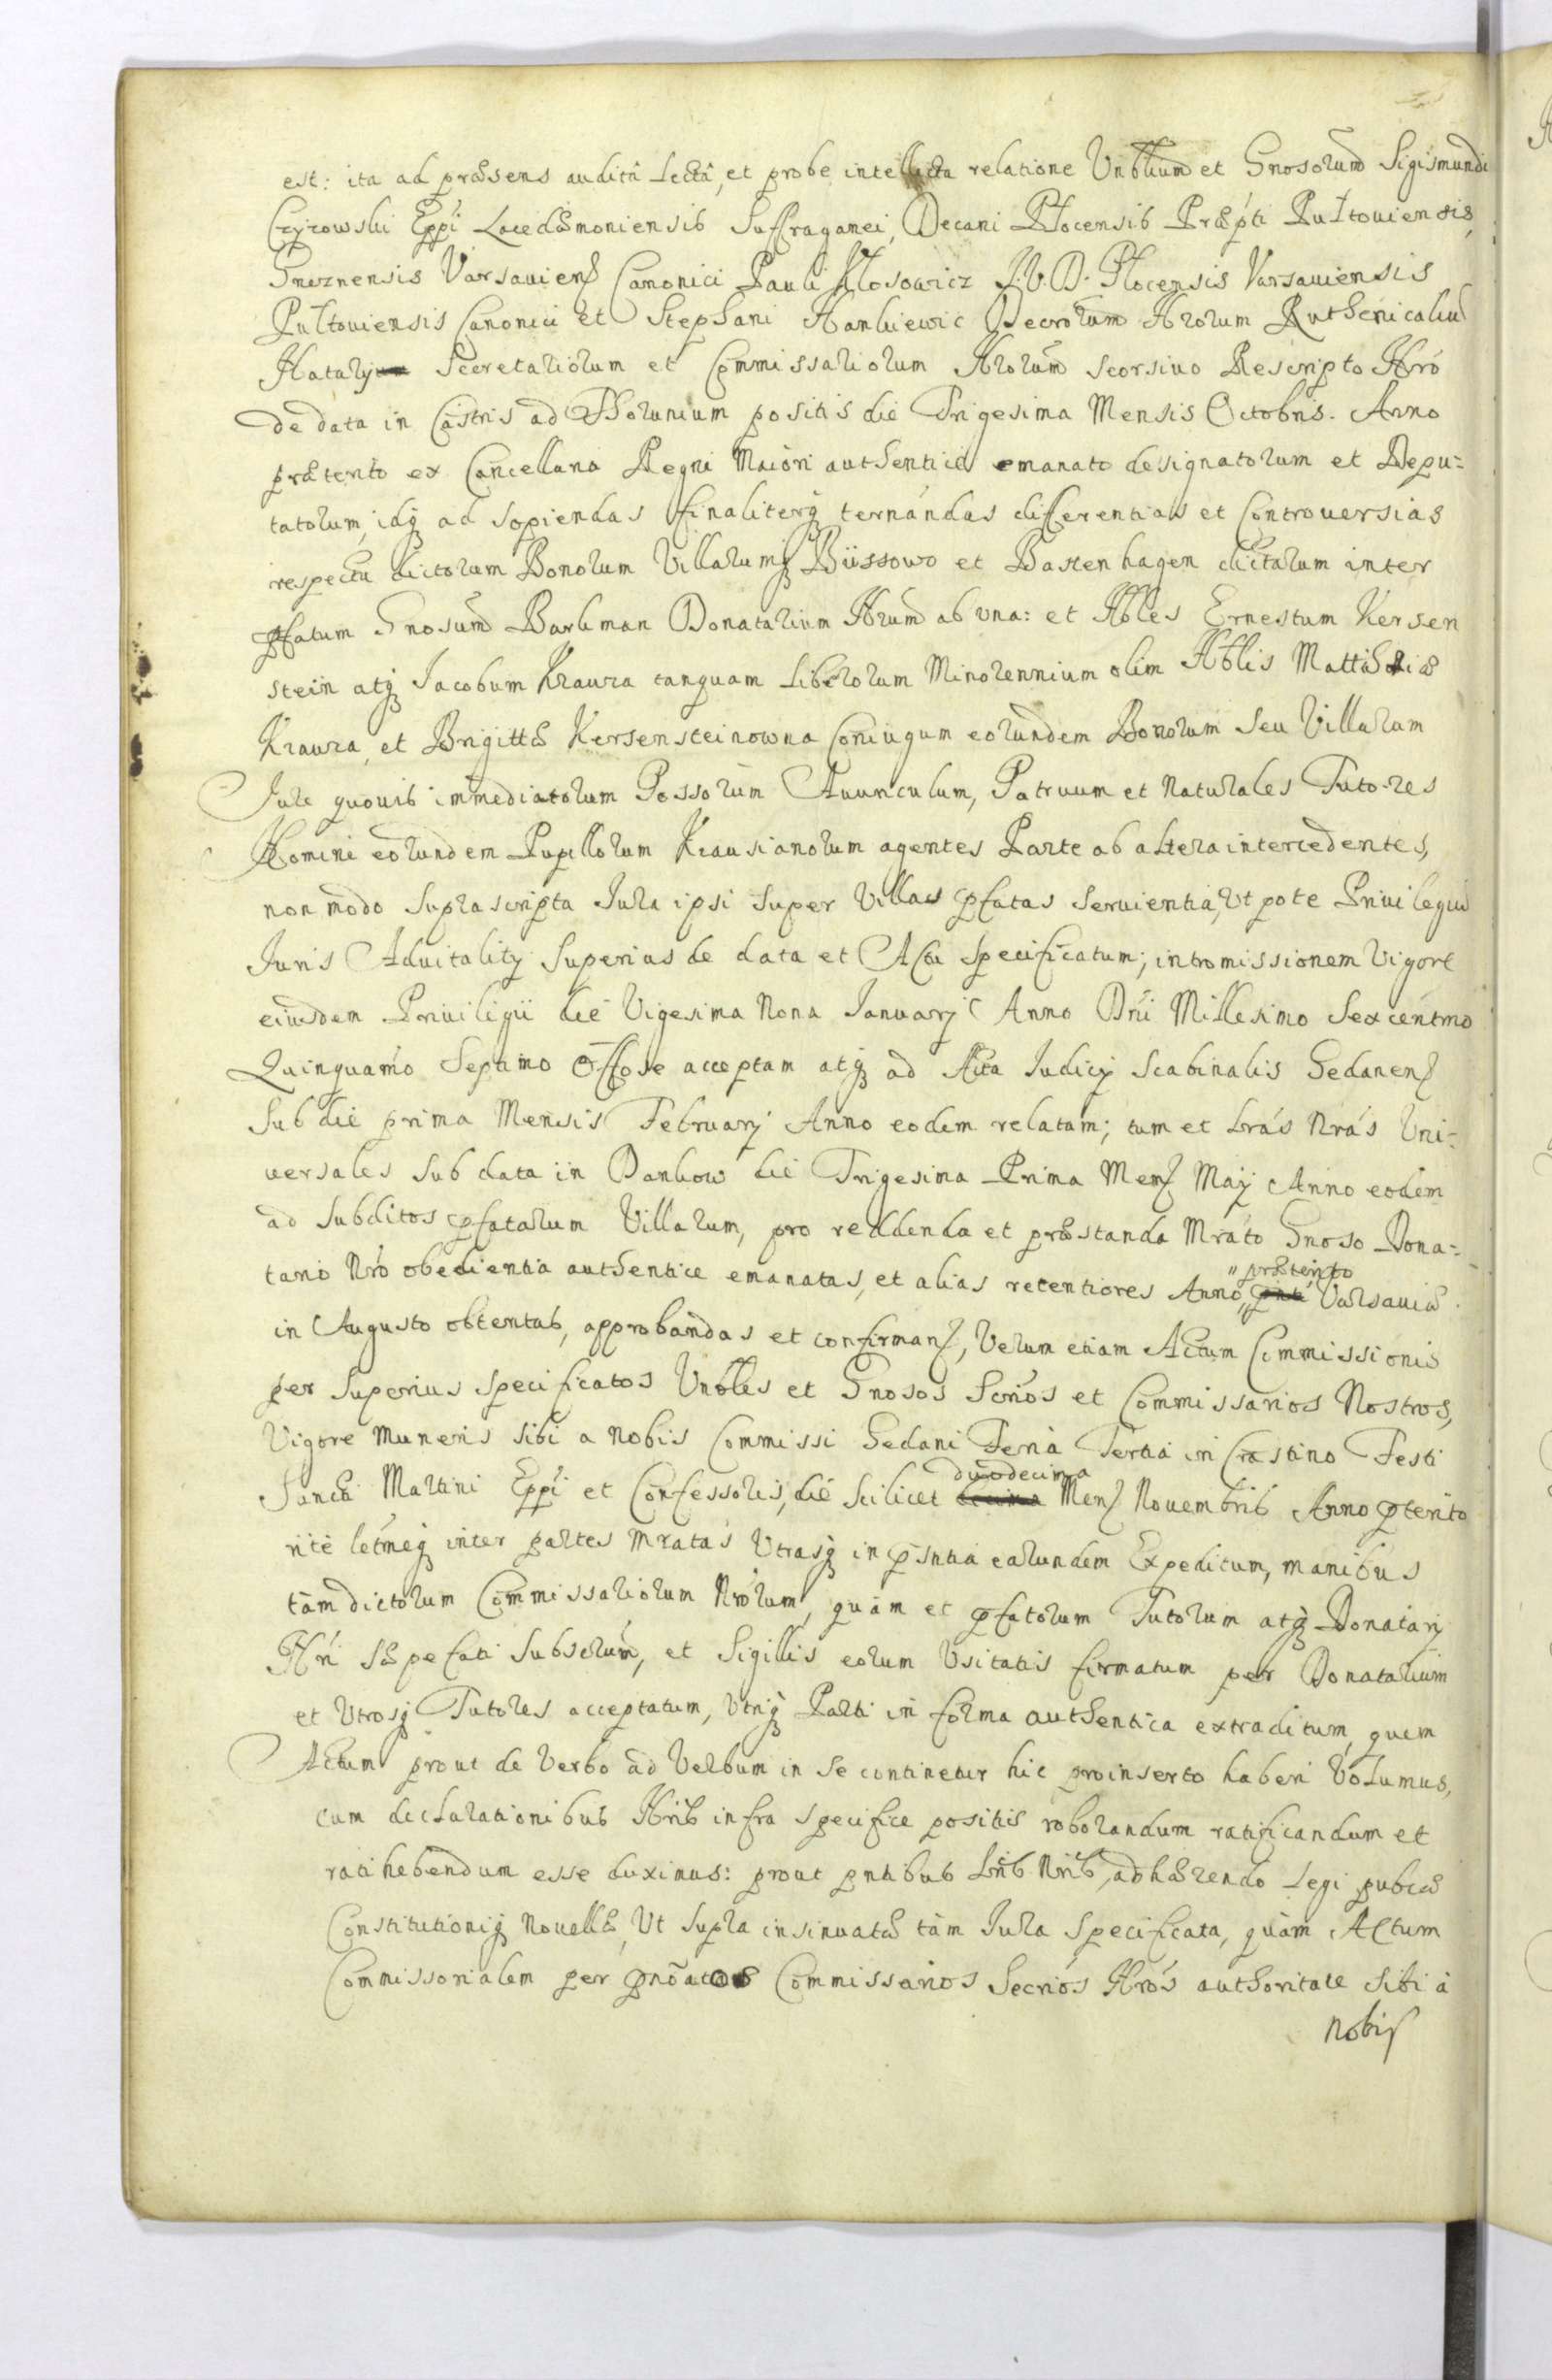 est: ita ad præsens auditâ Lectâ, et probe intellecta relatione Vnbilium et Gnosorum Sigismundi
Czyzowski Eppi Lacedæmoniensis Suffraganei, Decani Plocensis Præpti Pultouiensis,
Gneznensis Varsauiens Canonici Pauli Kłosowicz J.V.D. Plocensis Varsauiensis
Pultouiensis Canonici et Stephani Hankiewic Decrorum Nrorum Ruthenicaliu
Notary Secretariorum et Commissariorum Nrorum seorsiuo Rescripto Nro
de data in Castris ad Thorunium positis die Trigesima Mensis Octobris. Anno
præterito ex Cancellaria Regni Maiori authentice emanato designatorum et Depu=
tatorum, idq ad sopiendas finaliterq ternandas differentias et Controuersias
respectu dictorum Bonorum Villarumq Büssowo et Bastenhagen dictarum inter
pfatum Gnosum Barkman Donatarium Nrum ab vna: et Nbles Ernestum Kersen
stein atq Jacobum Krauza tanquam Liberorum Minorennium olim Nblis Matthiæ
Krauza, et Brigittæ Kersensteinowna Coniugum eorundem Bonorum seu Villarum
Jure quouis immediatorum Possorum Auunculum, Patruum et Naturales Tutores
Nomine eorundem Pupillorum Krausianorum agentes Parte ab altera intercedentes,
non modo suprascripta Jura ipsi super Villas pfatas seruientia, Vt pote Priuilegiu
Juris Aduitality superius de data et Actu specificatum; intromissionem Vigore
eiusdem Priuiligii die Vigesima Nona Januarij Anno Dni Millesimo Sexcentmo
Quinquamo Septimo Offose acceptam atq ad Acta Judicij Scabinalis Gedanens
sub die prima Mensis Februarj Anno eodem relatam; tum et Lras Nras Vni=
uersales sub data in Dankow die Trigesima Prima Mens Maij Anno eodem
ad subditos pfatarum Villarum, pro reddenda et præstanda Mrato Gnoso Dona=
tario Nro obedientia authentice emanatas, et alias recentiores Anno præterito Varsauiæ
in Augusto obtentas, approbandas et confirmans, Verum etiam Actum Commissionis
per superius specificatos Vnbles et Gnosos Scrios et Commissarios Nostros,
Vigore Muneris sibi a Nobis Commissi Gedani Feria Tertia in Crastino Festi
Sancti Martini Eppi et Confessoris, die scilicet duodecima Mens Nouembris Anno pterito
rite letmeq inter partes Mratas Vtrasq in psntia earundem Expeditum, manibus
tàm dictorum Commissariorum Nrorum, quàm et pfatorum Tutorum atq Donatarij
Nri sæpefati subscrum, et Sigillis eorum Vsitatis firmatum per Donatarium
et Vtrosq Tutores acceptatum, Vtriq Parti in forma authentica extraditum, quem
Actum prout de Verbo ad Verbum in se continetur hic pro inserto haberi Volumus,
cum declarationibus Nris infra specifice positis roborandum ratificandum et
ratihabendum esse duximus: prout pntibus Lris Nris, adhærendo Legi pubcæ
Constitutioniq Nouellæ, Vt supra insinuatæ tàm Jura Specificata, quàm Actum
Commissorialem per pnoatos Commissarios Secrios Nros authoritate sibi à
Nobis